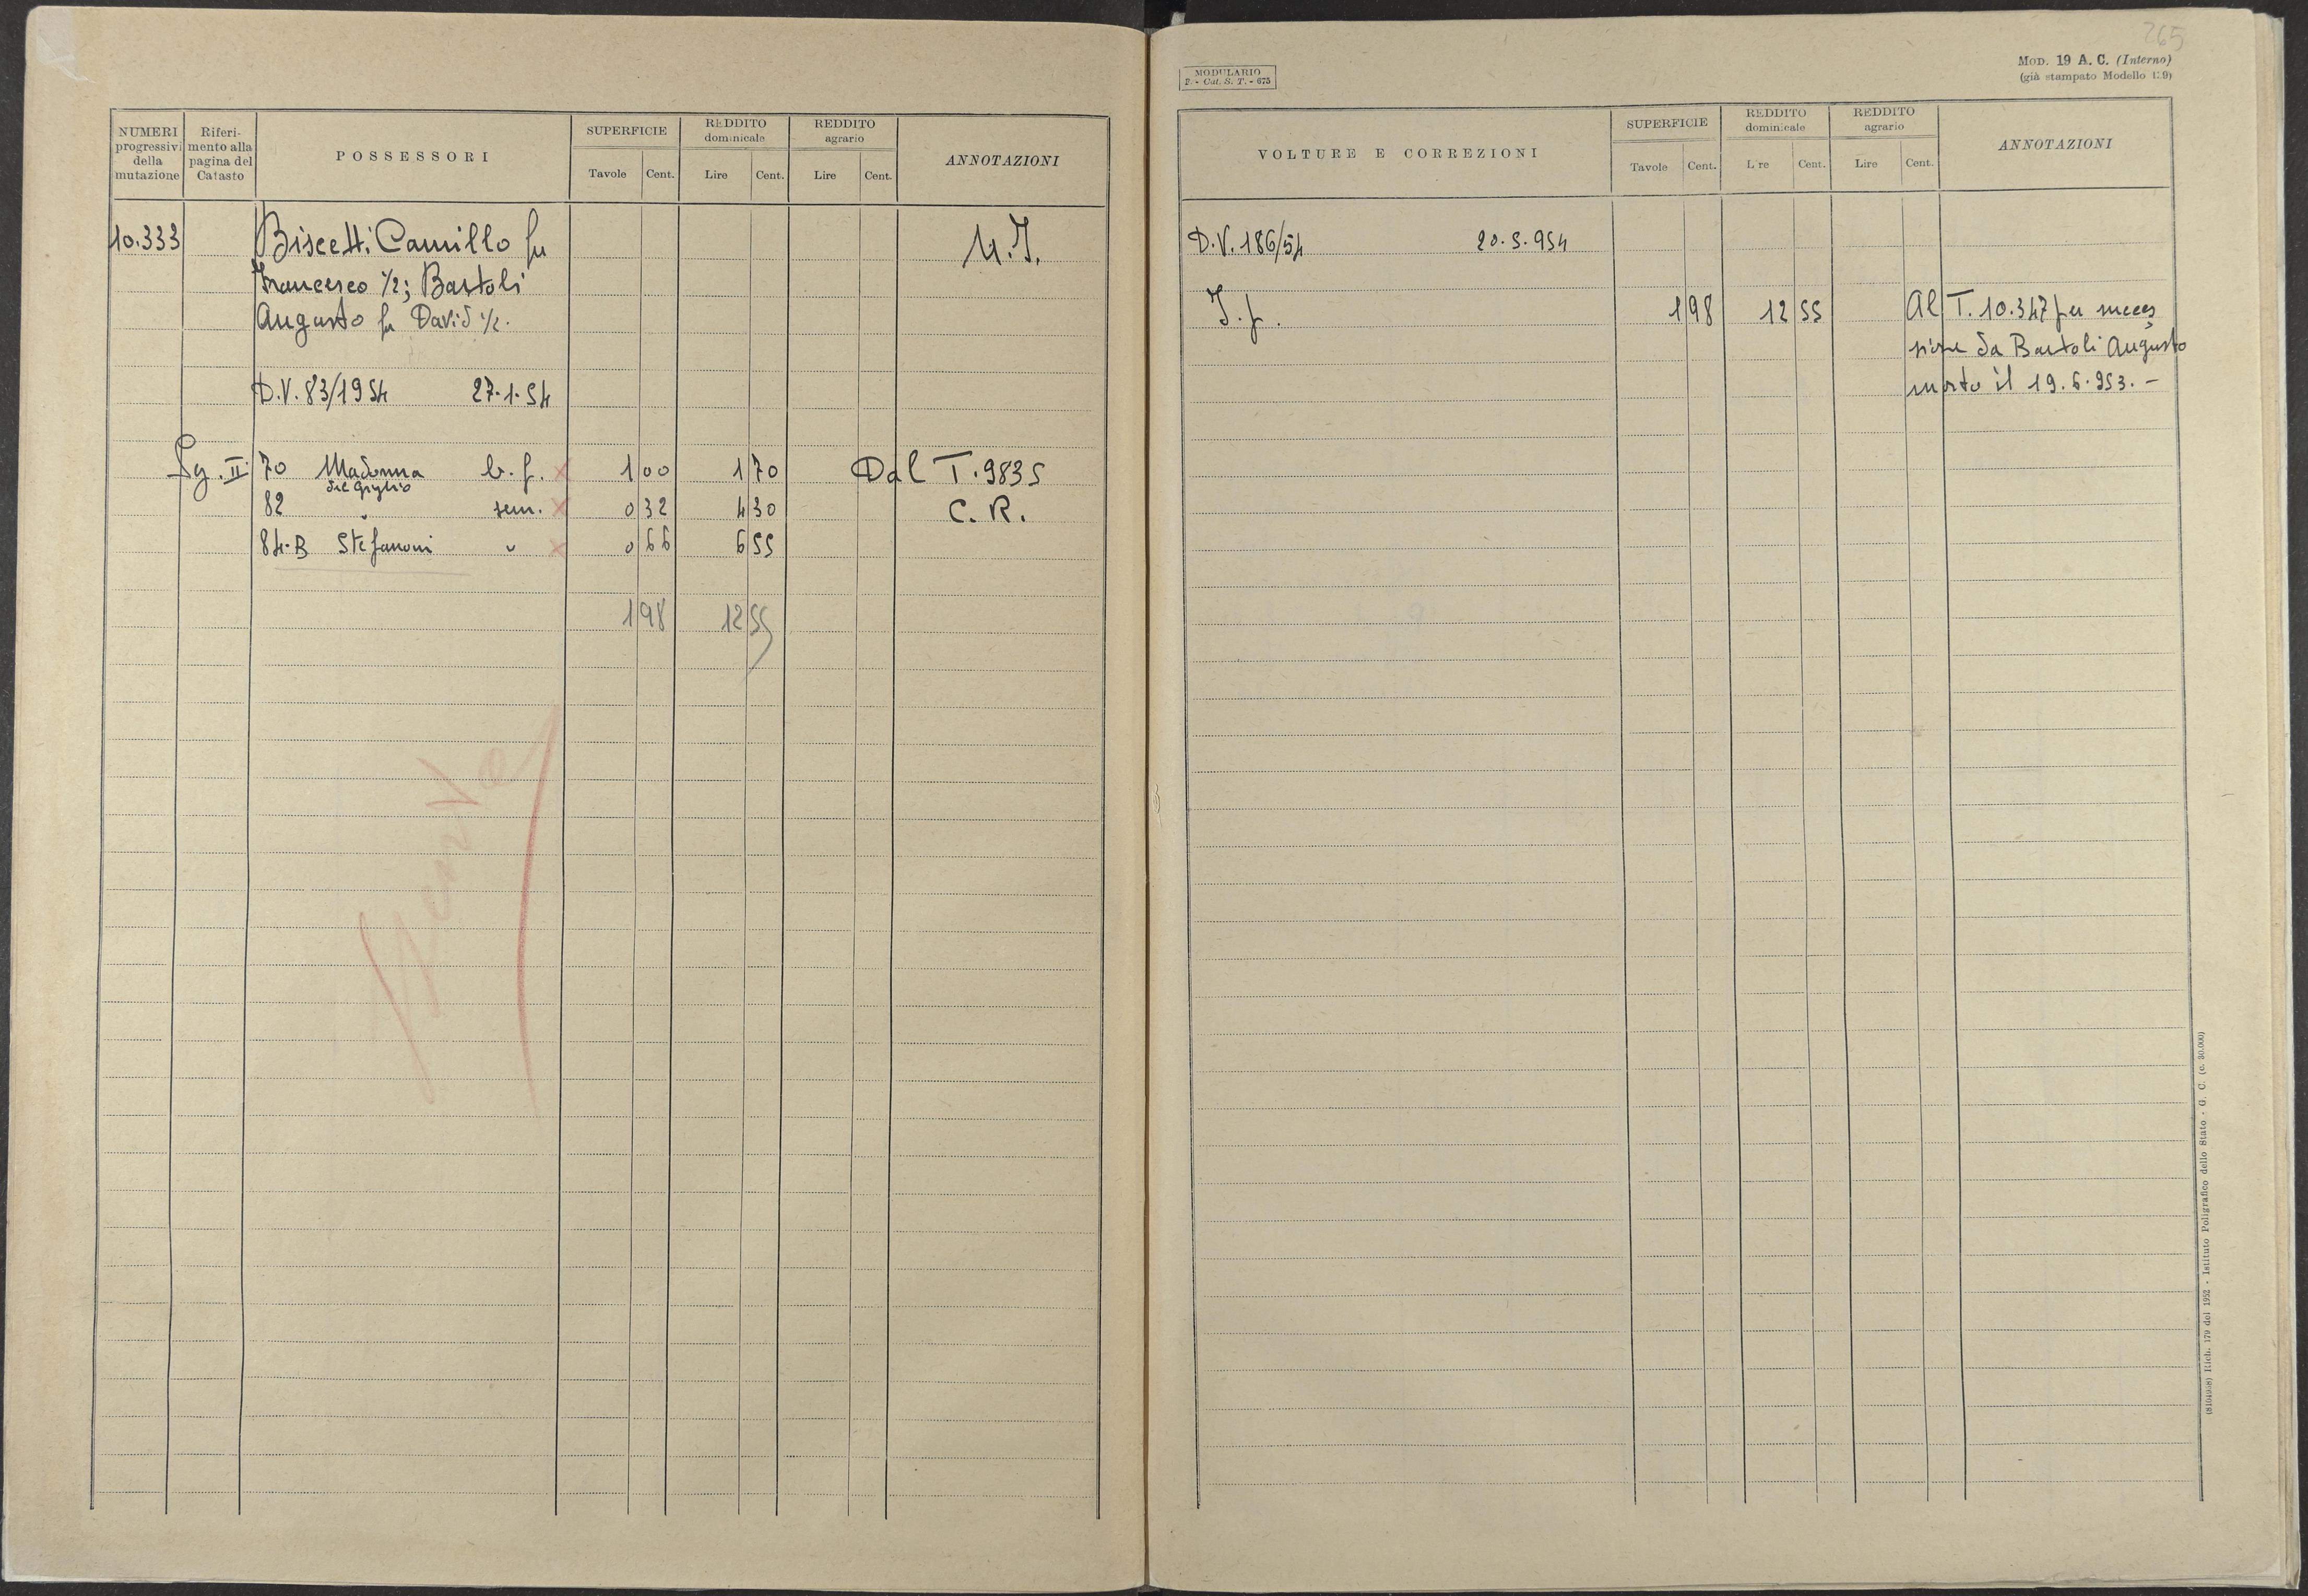 NUMERI progressivi della mutazione
Riferimento alla pagina del Catasto
POSSESSORI
SUPERFICIE
Tavole Cent.
REDDITO dominicale
Lire Cent.
REDDITO agrario
Lire Cent.
ANNOTAZIONI
10.333 Biscetti Camillo fu U.I.
Francesco 1/2; Bartoli
Augusto fu David 1/2.
D.V. 83/1954 27.1.54
Sez. II 70 Madonna b.f. x 1 00 1 70 Dal T. 9835
del Giglio
82 " sem. x 0 32 4 30 C.R.
84-B Stefanoni " x 0 66 6 55
1 98 12 55
265
MODULARIO
F. - Cat. S. T. - 675
MOD. 19 A. C. (Interno)
(già stampato Modello 129)
VOLTURE E CORREZIONI
SUPERFICIE
Tavole Cent.
REDDITO dominicale
Lire Cent.
REDDITO agrario
Lire Cent.
ANNOTAZIONI
D.V. 186/54 20.5.954
1 98 12 55 Al T. 10.347 per succes
sione da Bartoli Augusto
morto il 19.6.953. -
179 del 1952 - Istituto Poligrafico dello Stato - G. C. (c. 30.000)